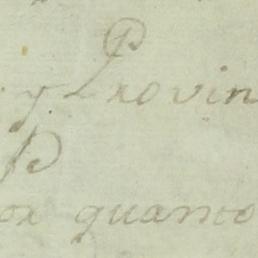 y Provin
Por quanto